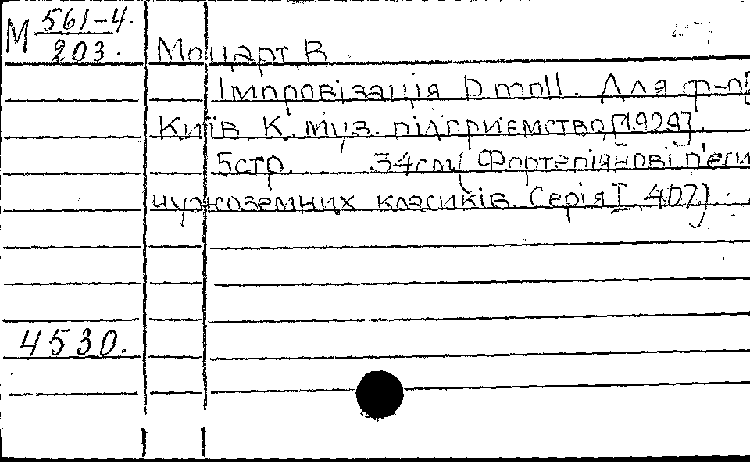 М 561-4.
203.
Моцарт В.
Імпровізація D moll. Для ф-п
Київ К. муз. підприємство, [1929].
5 стр. 34 см. (Фортепіянові п'єси
чужоземних класиків. Серія I 407).
4530.